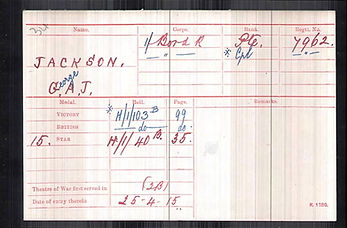 Name. Corps. Rank. Regtl. No.
1/ Bord R Pte. 7962.
" " * Cpl "
JACKSON.
George
G.A.J.
Medal. Roll. Page. Remarks.
VICTORY * H/1/103 B 99
BRITISH do do
15. STAR H/1/40 B. 35.
Theatre of War first served in (2B)
Date of entry therein 25-4-15.
K. 1380.